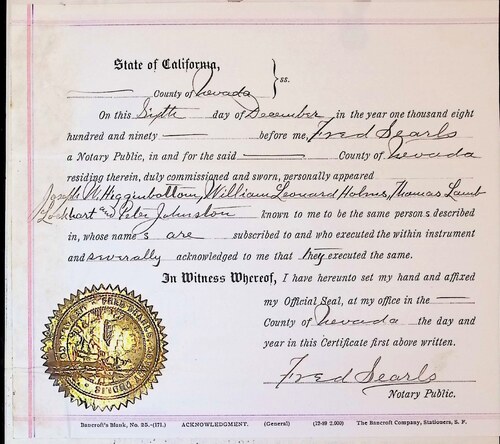 State of California,
County of Nevada } ss.
On this Sixth day of December in the year one thousand eight
hundred and ninety — before me, Fred Searls
a Notary Public, in and for the said — County of Nevada
residing therein, duly commissioned and sworn, personally appeared
Joseph W. Higginbottom, William Leonard Holms, Thomas Lamb
Lockhart and Peter Johnston known to me to be the same persons described
in, whose names are subscribed to and who executed the within instrument
and severally acknowledged to me that they executed the same.
In Witness Whereof, I have hereunto set my hand and affixed
my Official Seal, at my office in the —
County of Nevada the day and
year in this Certificate first above written.
Fred Searls
Notary Public.
Bancroft's Blank, No. 35.-(171.) ACKNOWLEDGMENT. (General) (12-89 2.000) The Bancroft Company, Stationers, S. F.